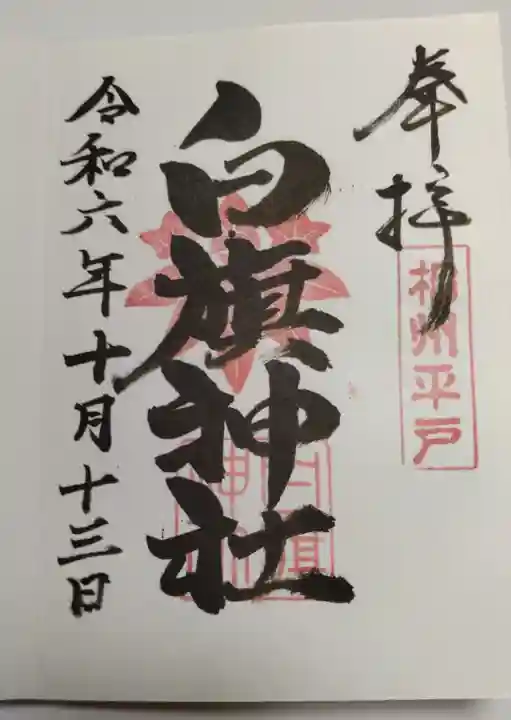 奉拝
相州平戸
白旗神社
白旗神社
令和六年十月十三日